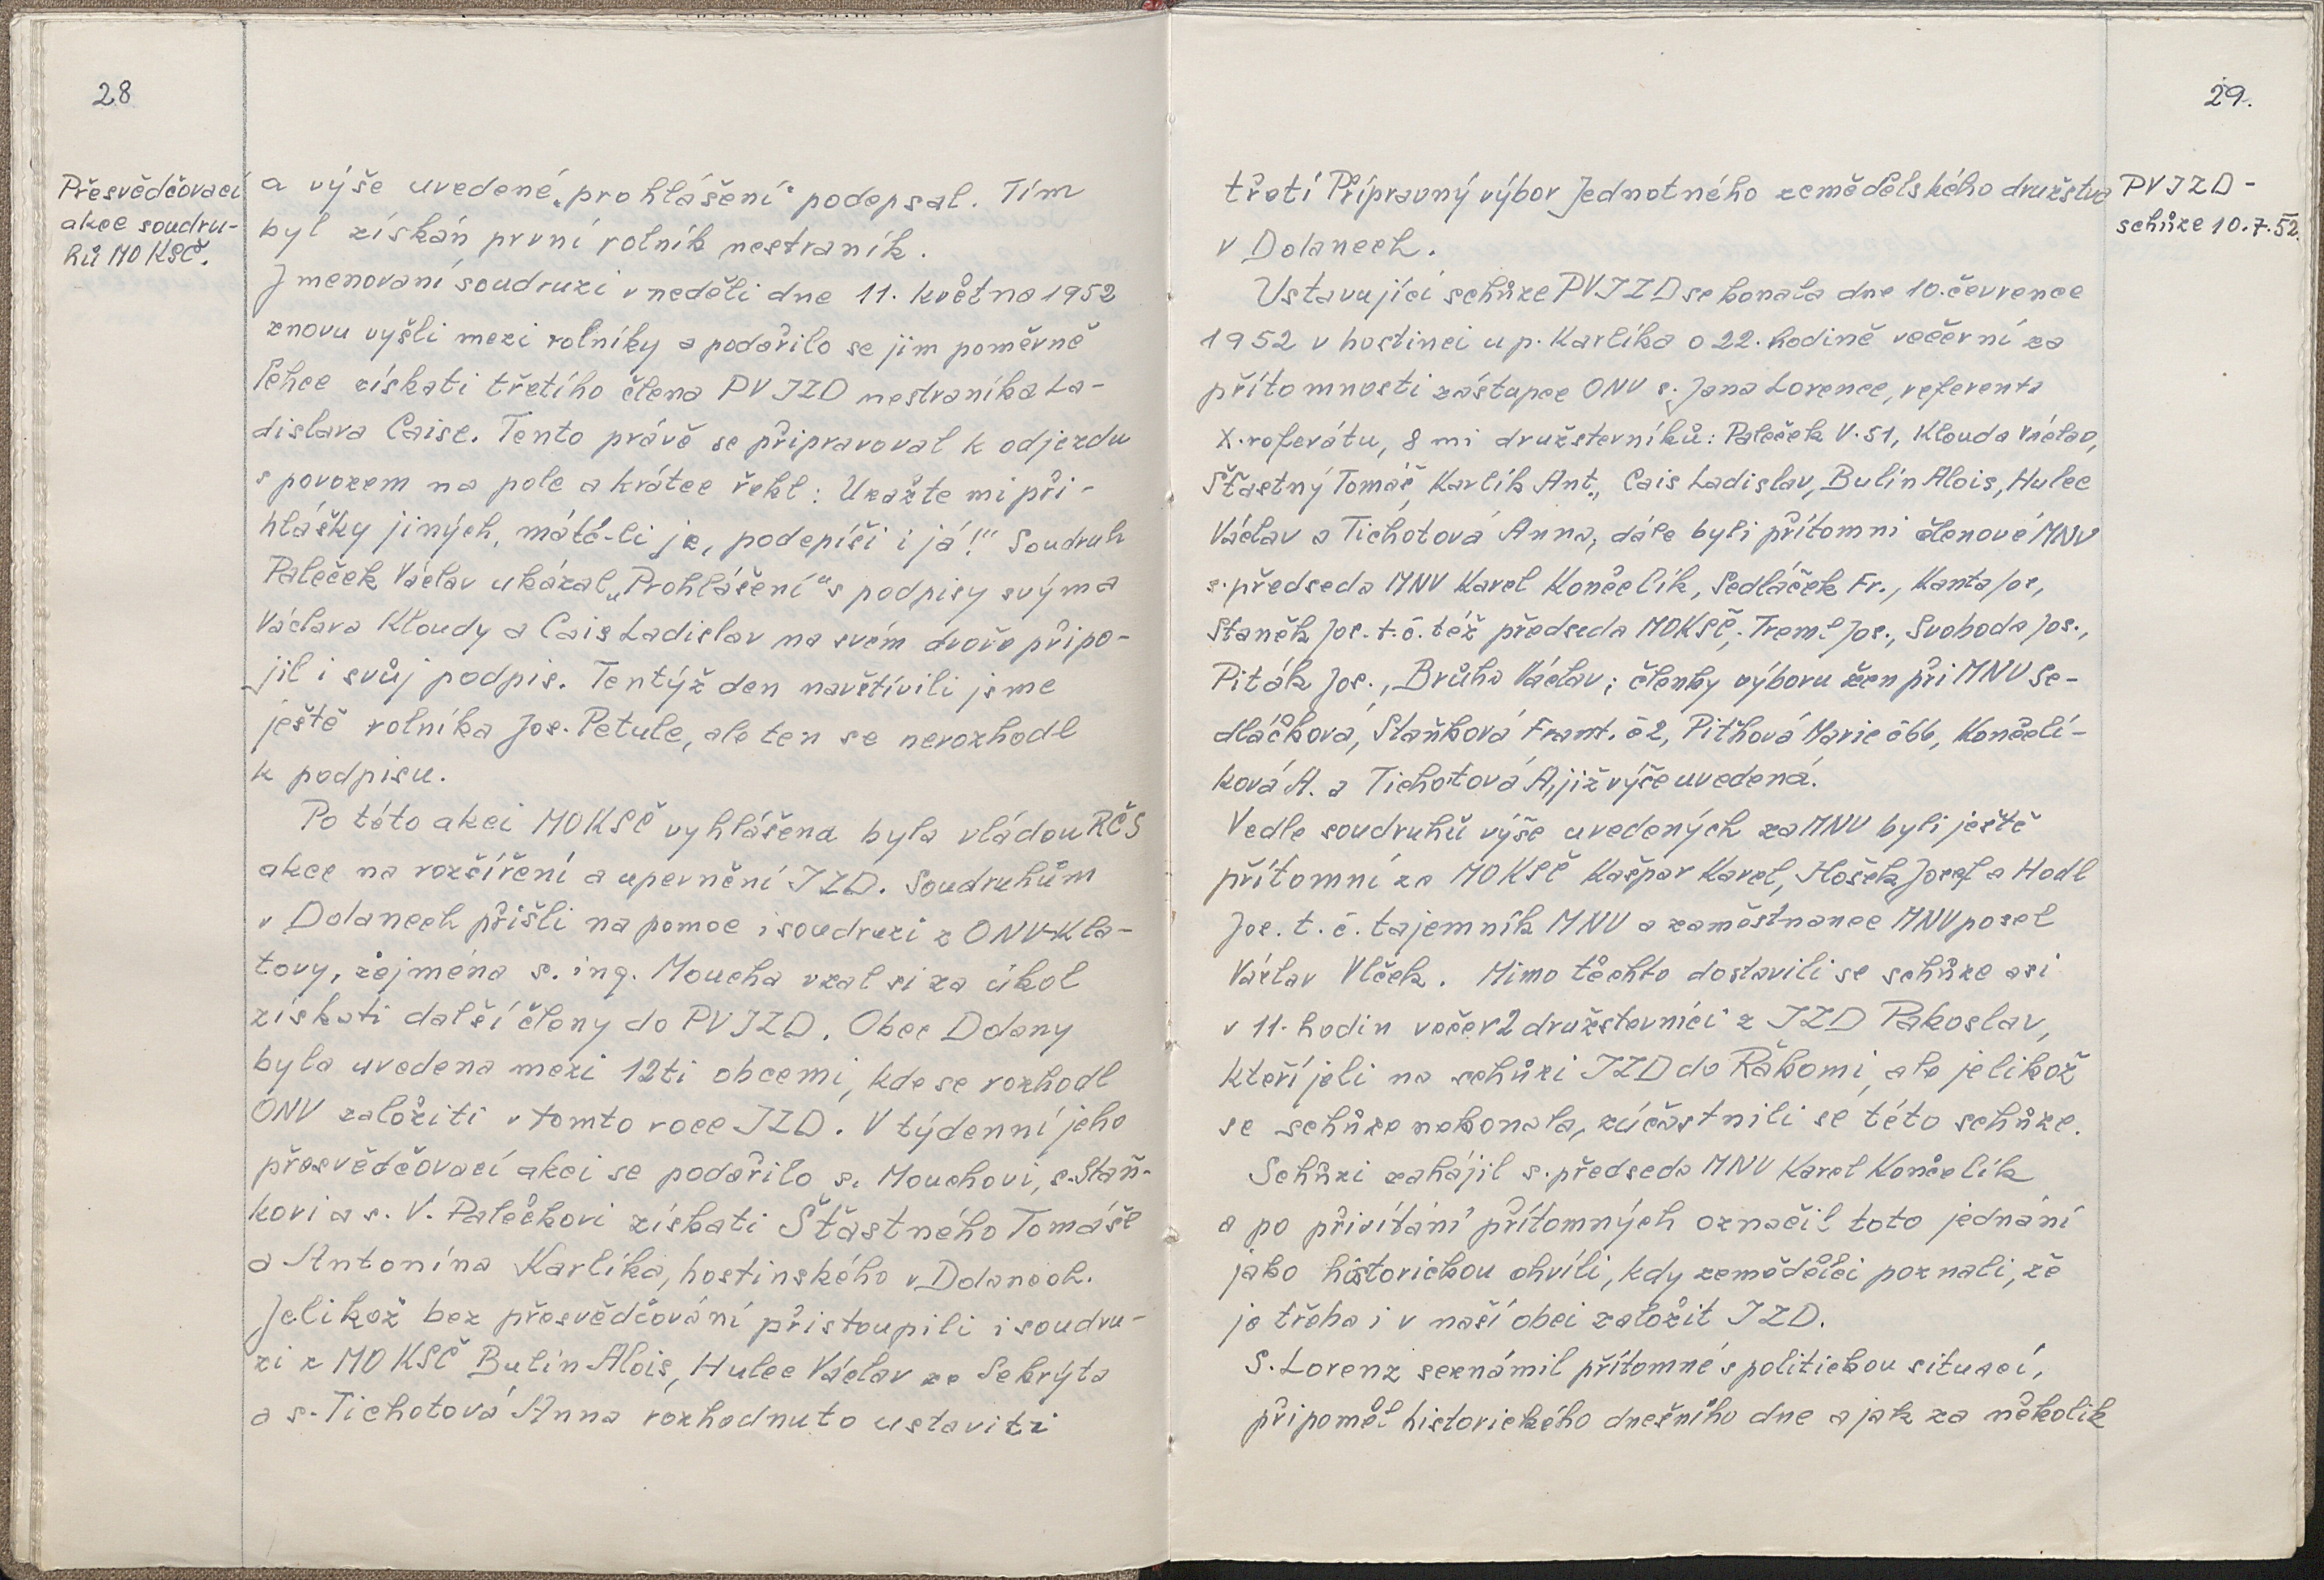 28
Přesvědčovací
akce soudru-
hů MO KSČ.
a výše uvedené „prohlášení“ podepsal. Tím
byl získán první rolník nestraník.
Jmenovaní soudruzi v neděli dne 11. května 1952
znovu vyšli mezi rolníky a podařilo se jim poměrně
lehce získati třetího člena PVJZD nestraníka La-
dislava Caise. Tento právě se připravoval k odjezdu
s povozem na pole a krátce řekl: Ukažte mi při-
hlášky jiných, máte-li je, podepíši i já!“ Soudruh
Paleček Václav ukázal „Prohlášení“ s podpisy svým a
Václava Kloudy a Cais Ladislav na svém dvoře připo-
jil i svůj podpis. Tentýž den navštívili jsme
ještě rolníka Jos. Petule, ale ten se nerozhodl
k podpisu.
Po této akci MOKSČ vyhlášena byla vládou RČS
akce na rozšíření a upevnění JZD. Soudruhům
v Dolanech přišli na pomoc i soudruzi z ONV-Kla-
tovy, zejména s. ing. Moucha vzal si za úkol
získati další členy do PVJZD. Obec Dolany
byla uvedena mezi 12ti obcemi, kde se rozhodl
ONV založiti v tomto roce JZD. V týdenní jeho
přesvědčovací akci se podařilo s. Mouchovi, s. Staň-
kovi a s. V. Palečkovi získati Šťastného Tomáše
a Antonína Karlíka, hostinského v Dolanech.
Jelikož bez přesvědčování přistoupili i soudru-
zi z MO KSČ Bulín Alois, Hulec Václav ze Sekrýta
a s. Tichotová Anna rozhodnuto ustaviti
29.
PVJZD -
schůze 10.7.52.
třetí Přípravný výbor Jednotného zemědělského družstva
v Dolanech.
Ustavující schůze PVJZD se konala dne 10. července
1952 v hostinci u p. Karlíka o 22. hodině večerní za
přítomnosti zástupce ONV s. Jana Lorence, referenta
X. referátu, 8 mi družstevníků: Paleček V. 51, Klouda Václav,
Šťastný Tomáš, Karlík Ant., Cais Ladislav, Bulín Alois, Hulec
Václav a Tichotová Anna, dále byli přítomni členové MNV
s. předseda MNV Karel Končelík, Sedláček Fr., Kanta Jos,
Staněk Jos. t.č. též předseda MOKSČ, Treml Jos., Svoboda Jos.,
Piták Jos., Brůha Václav; členky výboru žen při MNV Se-
dláčková, Staňková Frant. č 2, Pithová Marie č 66, Končelí-
ková A. a Tichotová A, již výše uvedená.
Vedle soudruhů výše uvedených za MNV byli ještě
přítomní za MOKSČ Kašpar Karel, Hošek Josef a Hodl
Jos. t. č. tajemník MNV a zaměstnanec MNV posel
Václav Vlček. Mimo těchto dostavili se schůze asi
v 11. hodin večer 2 družstevníci z JZD Pakoslav,
kteří jeli na schůzi JZD do Řakomi, ale jelikož
se schůze nekonala, zúčastnili se této schůze.
Schůzi zahájil s. předseda MNV Karel Končelík
a po přivítání přítomných označil toto jednání
jako historickou chvíli, kdy zemědělci poznali, že
je třeba i v naší obci založit JZD.
S. Lorenz seznámil přítomné s politickou situací,
připoměl historického dnešního dne a jak za několik